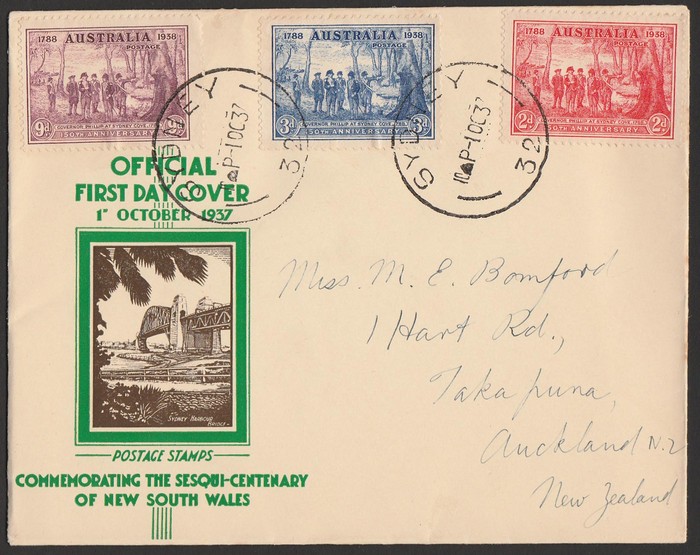 1788 AUSTRALIA 1938
POSTAGE
9D
GOVERNOR PHILLIP AT SYDNEY COVE, 1788
150TH ANNIVERSARY
1788 AUSTRALIA 1938
POSTAGE
3D
GOVERNOR PHILLIP AT SYDNEY COVE, 1788
150TH ANNIVERSARY
3D
1788 AUSTRALIA 1938
POSTAGE
2D
GOVERNOR PHILLIP AT SYDNEY COVE, 1788
150TH ANNIVERSARY
2D
SYDNEY
P-1OC37
32
SYDNEY
P-1OC37
32
OFFICIAL
FIRST DAY COVER
1ST OCTOBER 1937
SYDNEY HARBOUR
BRIDGE
POSTAGE STAMPS
COMMEMORATING THE SESQUI-CENTENARY
OF NEW SOUTH WALES
Miss. M. E. Bomford
1 Hart Rd.,
Takapuna,
Auckland N.2
New Zealand